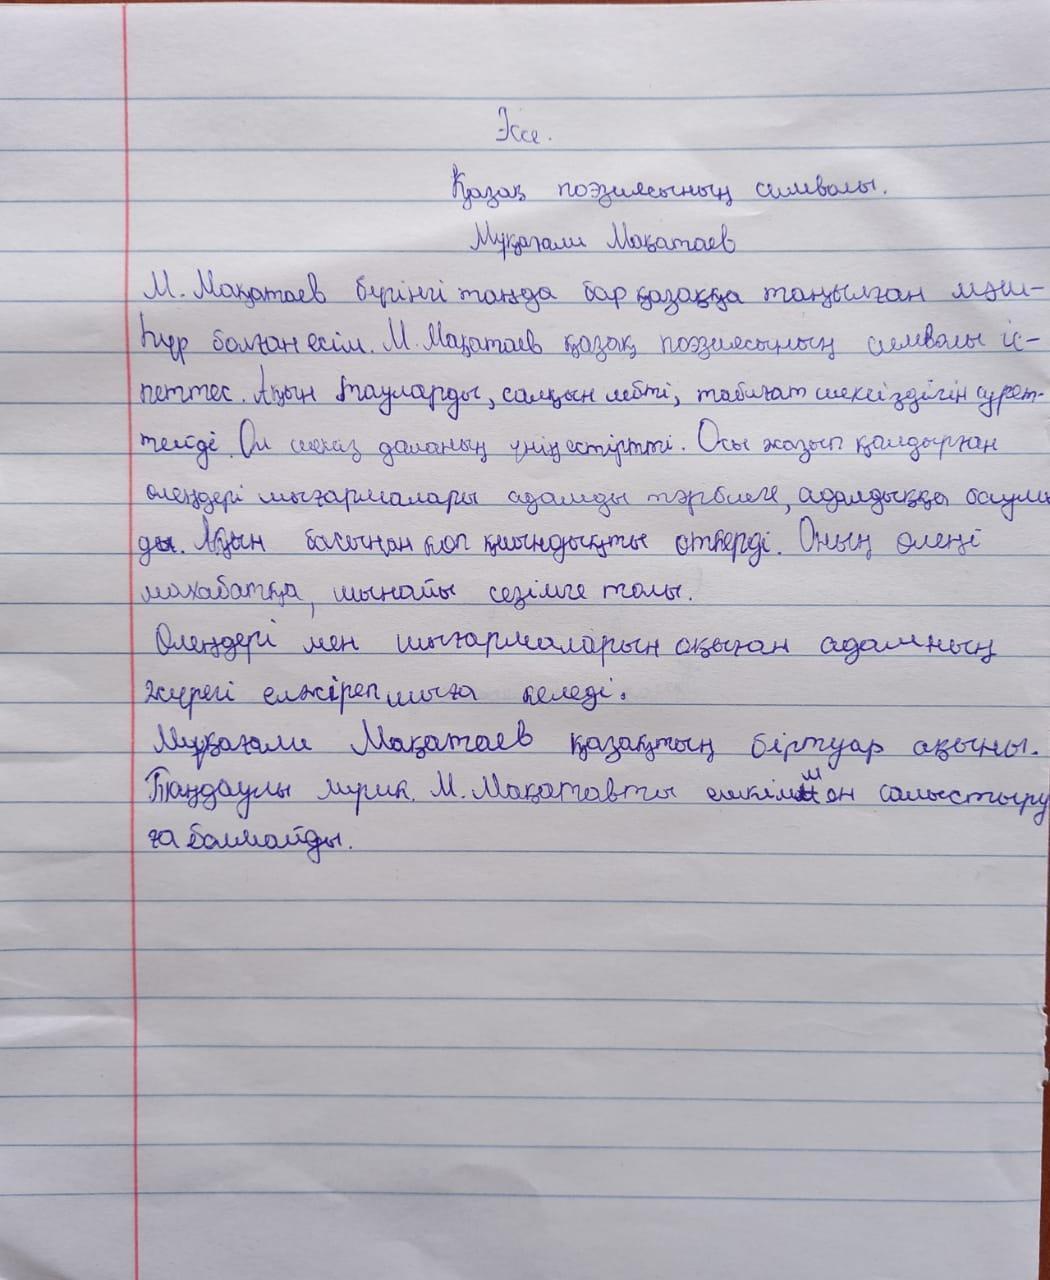 Эссе.
Қазақ поэзиясының символы.
Мұқағали Мақатаев
М. Мақатаев бүгінгі таңда бар қазаққа таңылған мәш-
һүр болған есім. М. Мақатаев қазақ поэзиясының символы іс-
петтес. Ақын тауларды, салқын лебті, табиғат шексіздігін сурет-
тейді. Ол шексіз даланың үнін естіртті. Осы жазып қалдырған
өлеңдері шығармалары адамды тәрбиеге, адалдыққа баулы
ды. Ақын басынан көп қиындықты өткерді. Оның өлеңі
махабатқа, шынайы сезімге толы.
Өлеңдері мен шығармаларын оқыған адамның
жүрегі елжіреп шыға келеді.
Мұқағали Мақатаев қазақтың біртуар ақыны.
Таңдаулы лирик. М. Мақатавты ешкіммен салыстыру
ға болмайды.